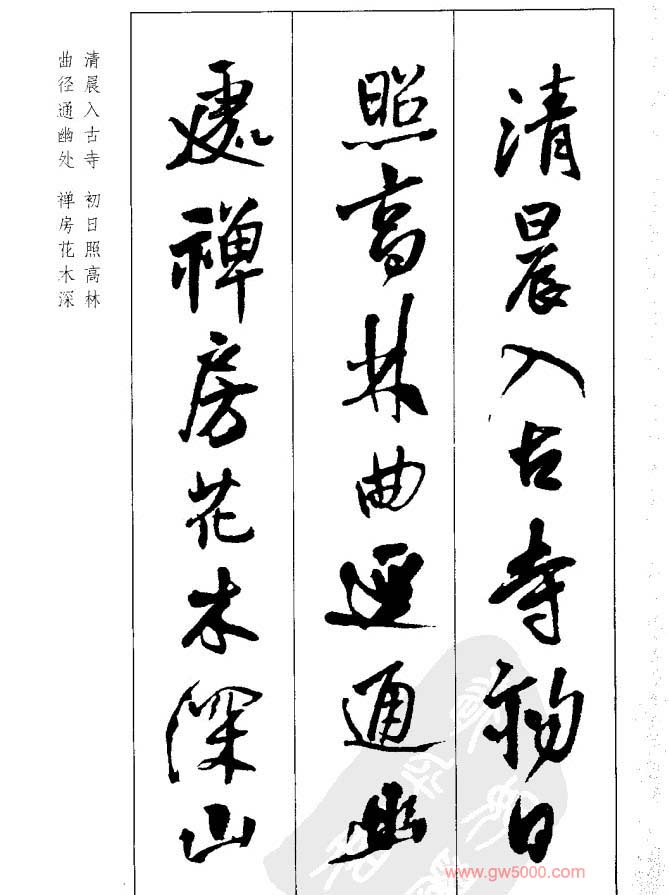 清晨入古寺初日
照高林曲逕通幽
處禪房花木深山
清晨入古寺 初日照高林
曲径通幽处 禅房花木深
www.gw5000.com